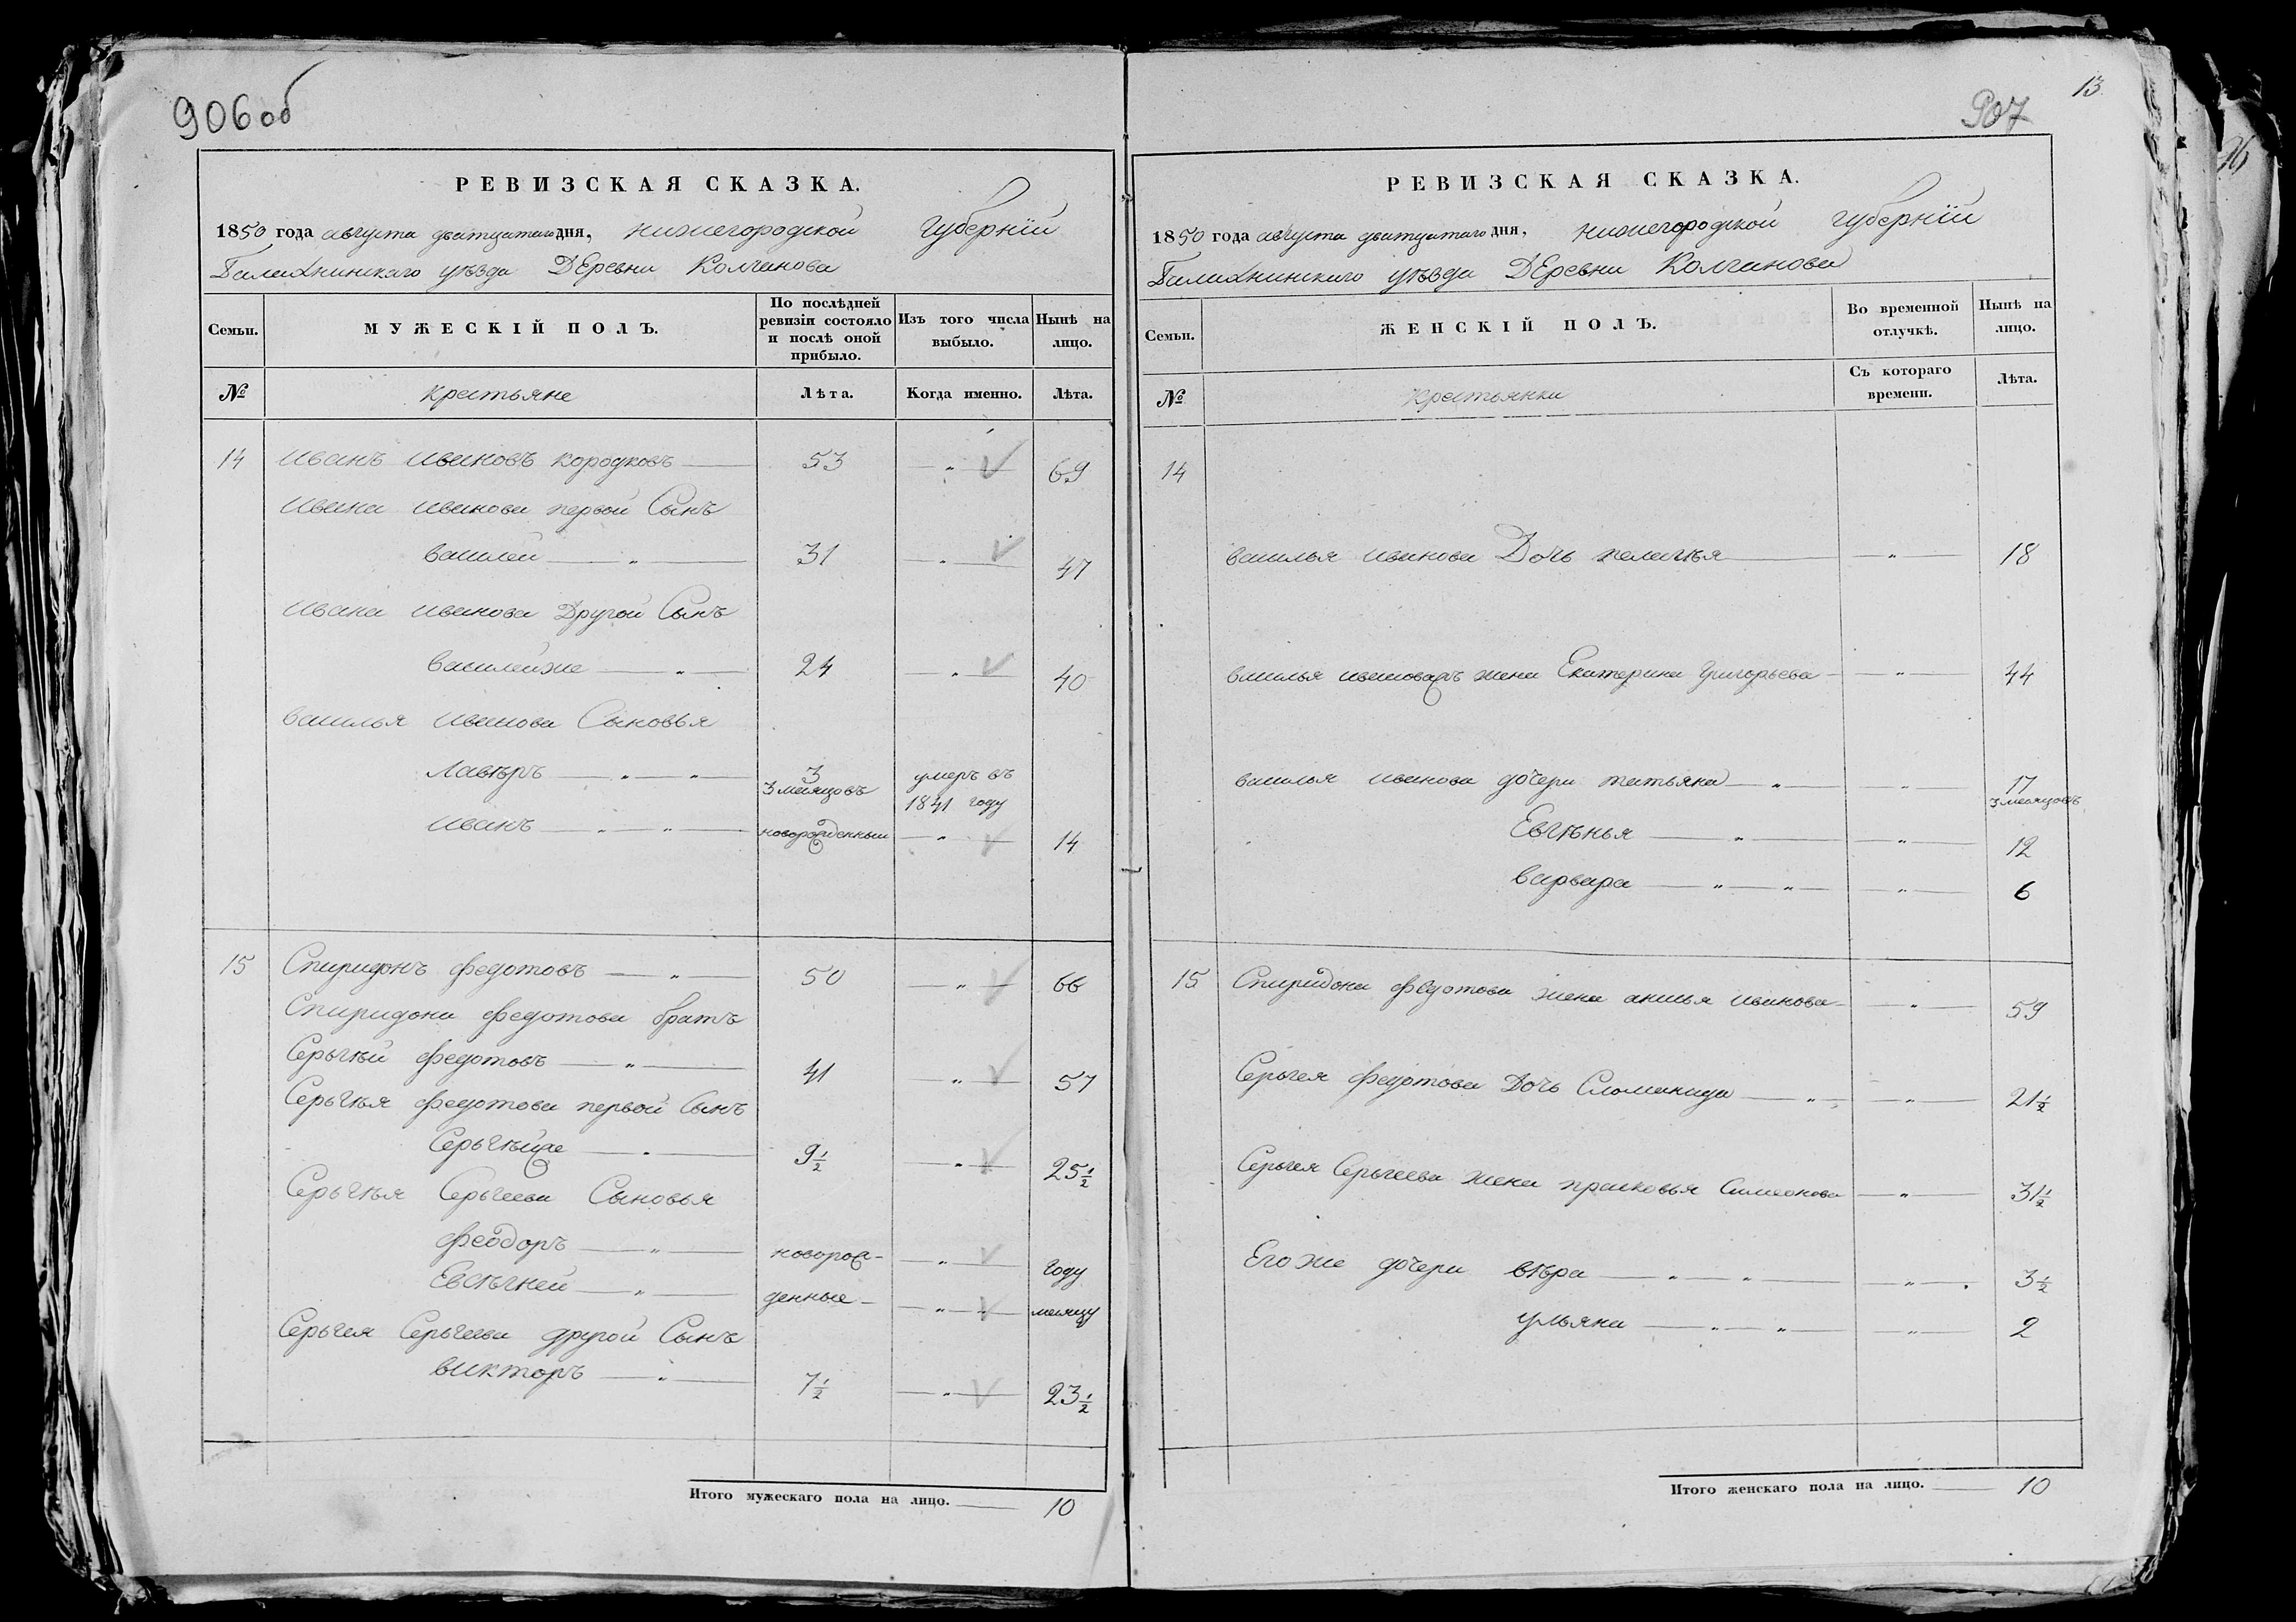 906 об
РЕВИЗСКАЯ СКАЗКА.
1850 года августа дватцатаго дня, нижегородской губернїи
Балахнинскаго уѣзда ДЕревни Колчанова
Семьи.
МУЖЕСКІЙ ПОЛЪ.
По послѣдней ревизіи состояло и послѣ оной прибыло.
Изъ того числа выбыло.
Нынѣ на лицо.
№ крестьяне Лѣта. Когда именно. Лѣта.
14 иванъ ивановъ кородковъ — 53 — „ — 69
ивана иванова первой Сынъ
василей — „ — 31 — „ — 47
ивана иванова Другой Сынъ
василейже — „ — 24 — „ — 40
василья иванова Сыновья
Лавѣръ — „ — „ 3 умеръ въ
3 месяцовъ 1841 году
иванъ — „ — „ — новорожденный — „ — 14
15 Спиридонъ федотовъ — „ — 50 — „ — 66
Спиридона федотова братъ
Серьгѣй федотовъ — „ — 41 — „ — 57
Серьгѣя федотова первой Сынъ
Серьгѣйже — „ — 9 1/2 — „ — 25 1/2
Серьгѣя Серьгеева Сыновья
феодоръ — „ — новорож- — „ — году
Евсѣгней — „ — денные — — „ — месяцу
Серьгея Серьгеева другой Сынъ
викторъ — „ — 7 1/2 — „ — 23 1/2
Итого мужескаго пола на лицо. — 10
13
907
РЕВИЗСКАЯ СКАЗКА.
1850 года августа дватцатаго дня, нижегородской губернїи
Балахнинскаго уѣзда ДЕревни Колчанова
Семьи.
ЖЕНСКІЙ ПОЛЪ.
Во временной отлучкѣ.
Нынѣ на лицо.
№ крестьянки Съ котораго времени. Лѣта.
14
василья иванова Дочь пелагѣя — — „ — 18
василья ивановажъ жена Екатерина григорьева — — „ — 44
василья иванова дочери татьяна — „ — „ — 17
3 месяцовъ
Евгѣнья — „ — — „ — 12
варвара — „ — „ — — „ — 6
15 Спиридона федотова жена анисья иванова — — „ — 59
Серьгея федотова Дочь Сломанида — „ — — „ — 21 1/2
Серьгея Серьгеева жена прасковья Симеонова — „ — 31 1/2
Его же дочери вѣра — „ — „ — — „ — 3 1/2
ульяна — „ — „ — — „ — 2
Итого женскаго пола на лицо. — 10